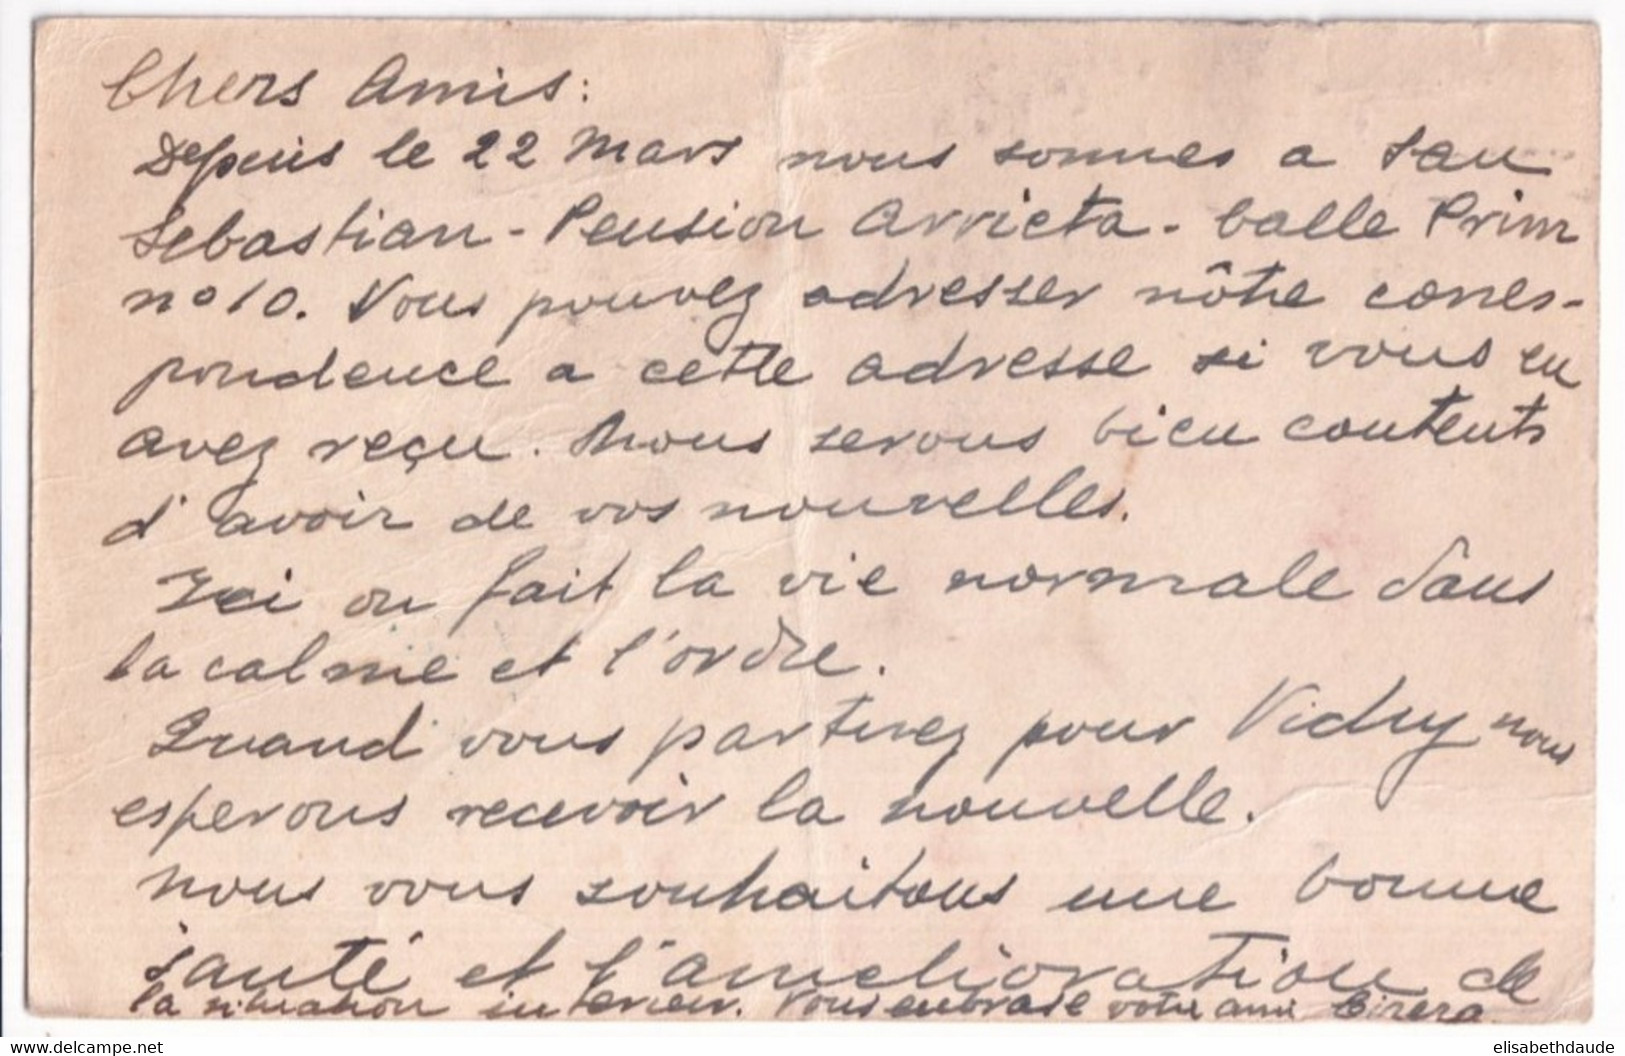 Chers Amis:
Depuis le 22 Mars nous sommes a San
Sebastian - Pension Arrieta - Calle Prim
nº 10. Vous pouvez adresser nôtre corres-
pondence a cette adresse si vous en
avez reçu. Nous serons bien contents
d'avoir de vos nouvelles.
Ici on fait la vie normale dans
la calme et l'ordre.
Quand vous partirez pour Vichy nous
esperons recevoir la nouvelle.
Nous vous souhaitons une bonne
santé et l'amelioration de
la situation interieur. Vous embrasse votre ami Cirera
elisabethdaude-delcampe.net